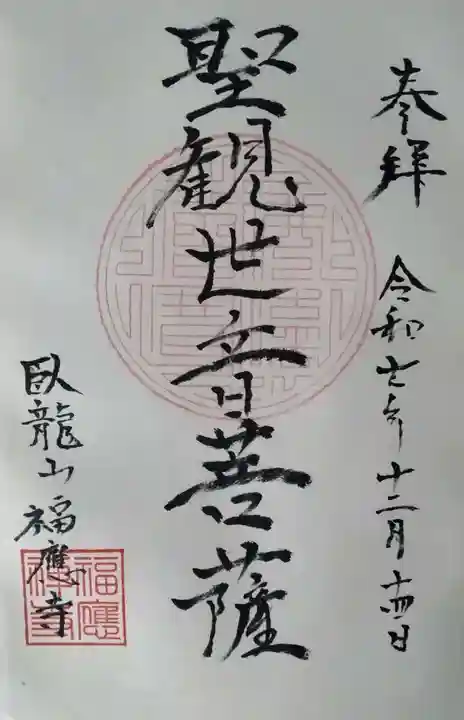 奉拝 令和七年十二月十四日
聖観世音菩薩
臥龍山福應寺